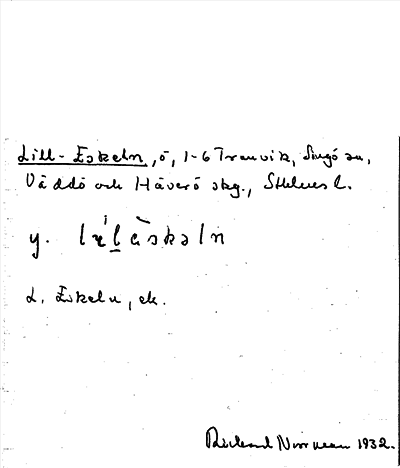 Lill-Eskeln, ö, 1-6 Tranvik, Singö sn,
Väddö och Häverö skg., Sthlms l.
y. lɪ̀lɛ̀skəln
d. Eskeln, ek.
Rickard Norrman 1932.